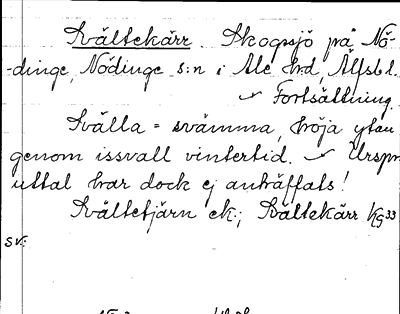 Svältekärr. Skogssjö på Nö-
-dinge, Nödinge s:n i Ale hrd, Älfsb.l.
Fortsättning.
Svälla = svämma, höja ytan
genom issvall vintertid. Urspr
uttal har dock ej anträffats!
Svältetjärn ek.; Svältekärr Kg 33
sv: